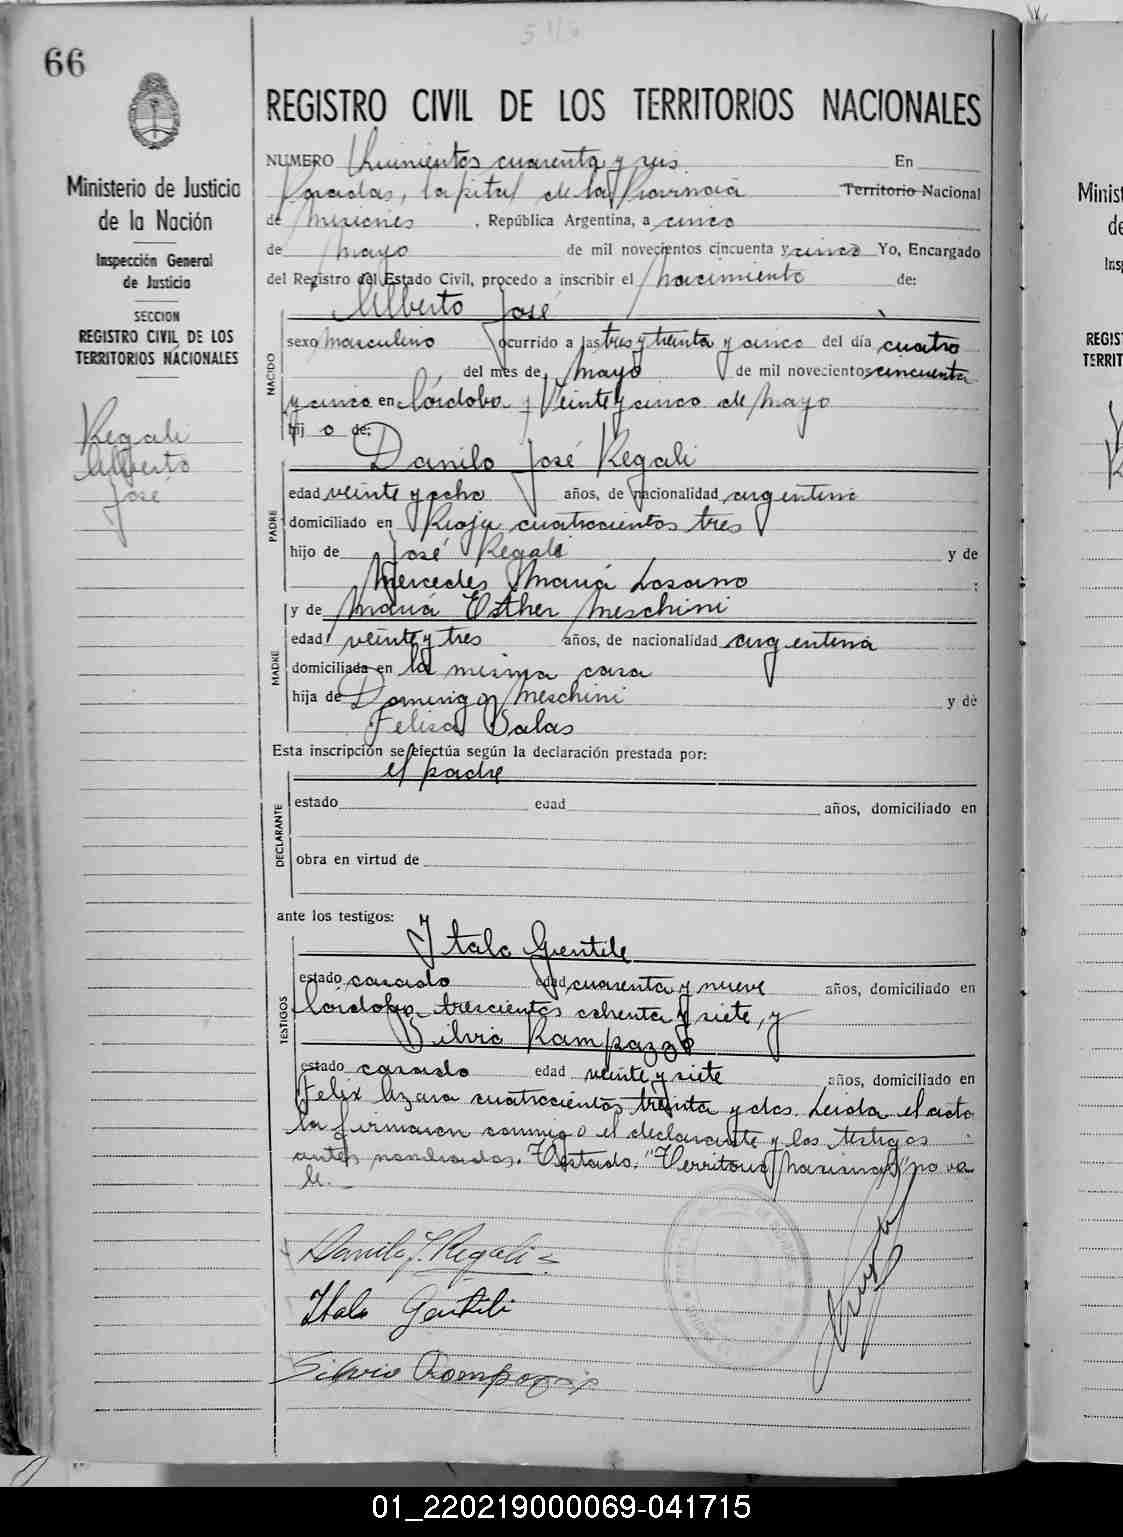 66
Ministerio de Justicia
de la Nación
Inspección General
de Justicia
SECCION
REGISTRO CIVIL DE LOS
TERRITORIOS NACIONALES
Regali
Alberto
José
REGISTRO CIVIL DE LOS TERRITORIOS NACIONALES
NUMERO Quinientos cuarenta y seis En
Posadas, Capital de la Provincia Territorio Nacional
de Misiones, República Argentina, a cinco
de mayo de mil novecientos cincuenta y cinco Yo, Encargado
del Registro del Estado Civil, procedo a inscribir el nacimiento de:
Alberto José
NACIDO
sexo masculino ocurrido a las tres y treinta y cinco del día cuatro
del mes de mayo de mil novecientos cincuenta
y cinco en Córdoba y Veinte y cinco de Mayo
hij o de:
Danilo José Regali
PADRE
edad veinte y ocho años, de nacionalidad argentina
domiciliado en Rioja cuatrocientos tres
hijo de José Regali y de
Mercedes María Losano :
y de María Esther Meschini
MADRE
edad veinte y tres años, de nacionalidad argentina
domiciliada en la misma casa
hija de Domingo Meschini y de
Felisa Salas
Esta inscripción se efectúa según la declaración prestada por:
el padre
DECLARANTE
estado edad años, domiciliado en
obra en virtud de
ante los testigos:
Italo Gentile
TESTIGOS
estado casado edad cuarenta y nueve años, domiciliado en
Córdoba trescientos ochenta y siete, y
Silvio Rampazzo
estado casado edad veinte y siete años, domiciliado en
Felix Azara cuatrocientos treinta y dos. Leida el acta
la firmaron conmigo el declarante y los testigos
antes nombrados. Testado. "Territorio Nacional" no va
le.
Danilo J. Regali
Italo Gentili
Silvio Rampazzo
01_220219000069-041715